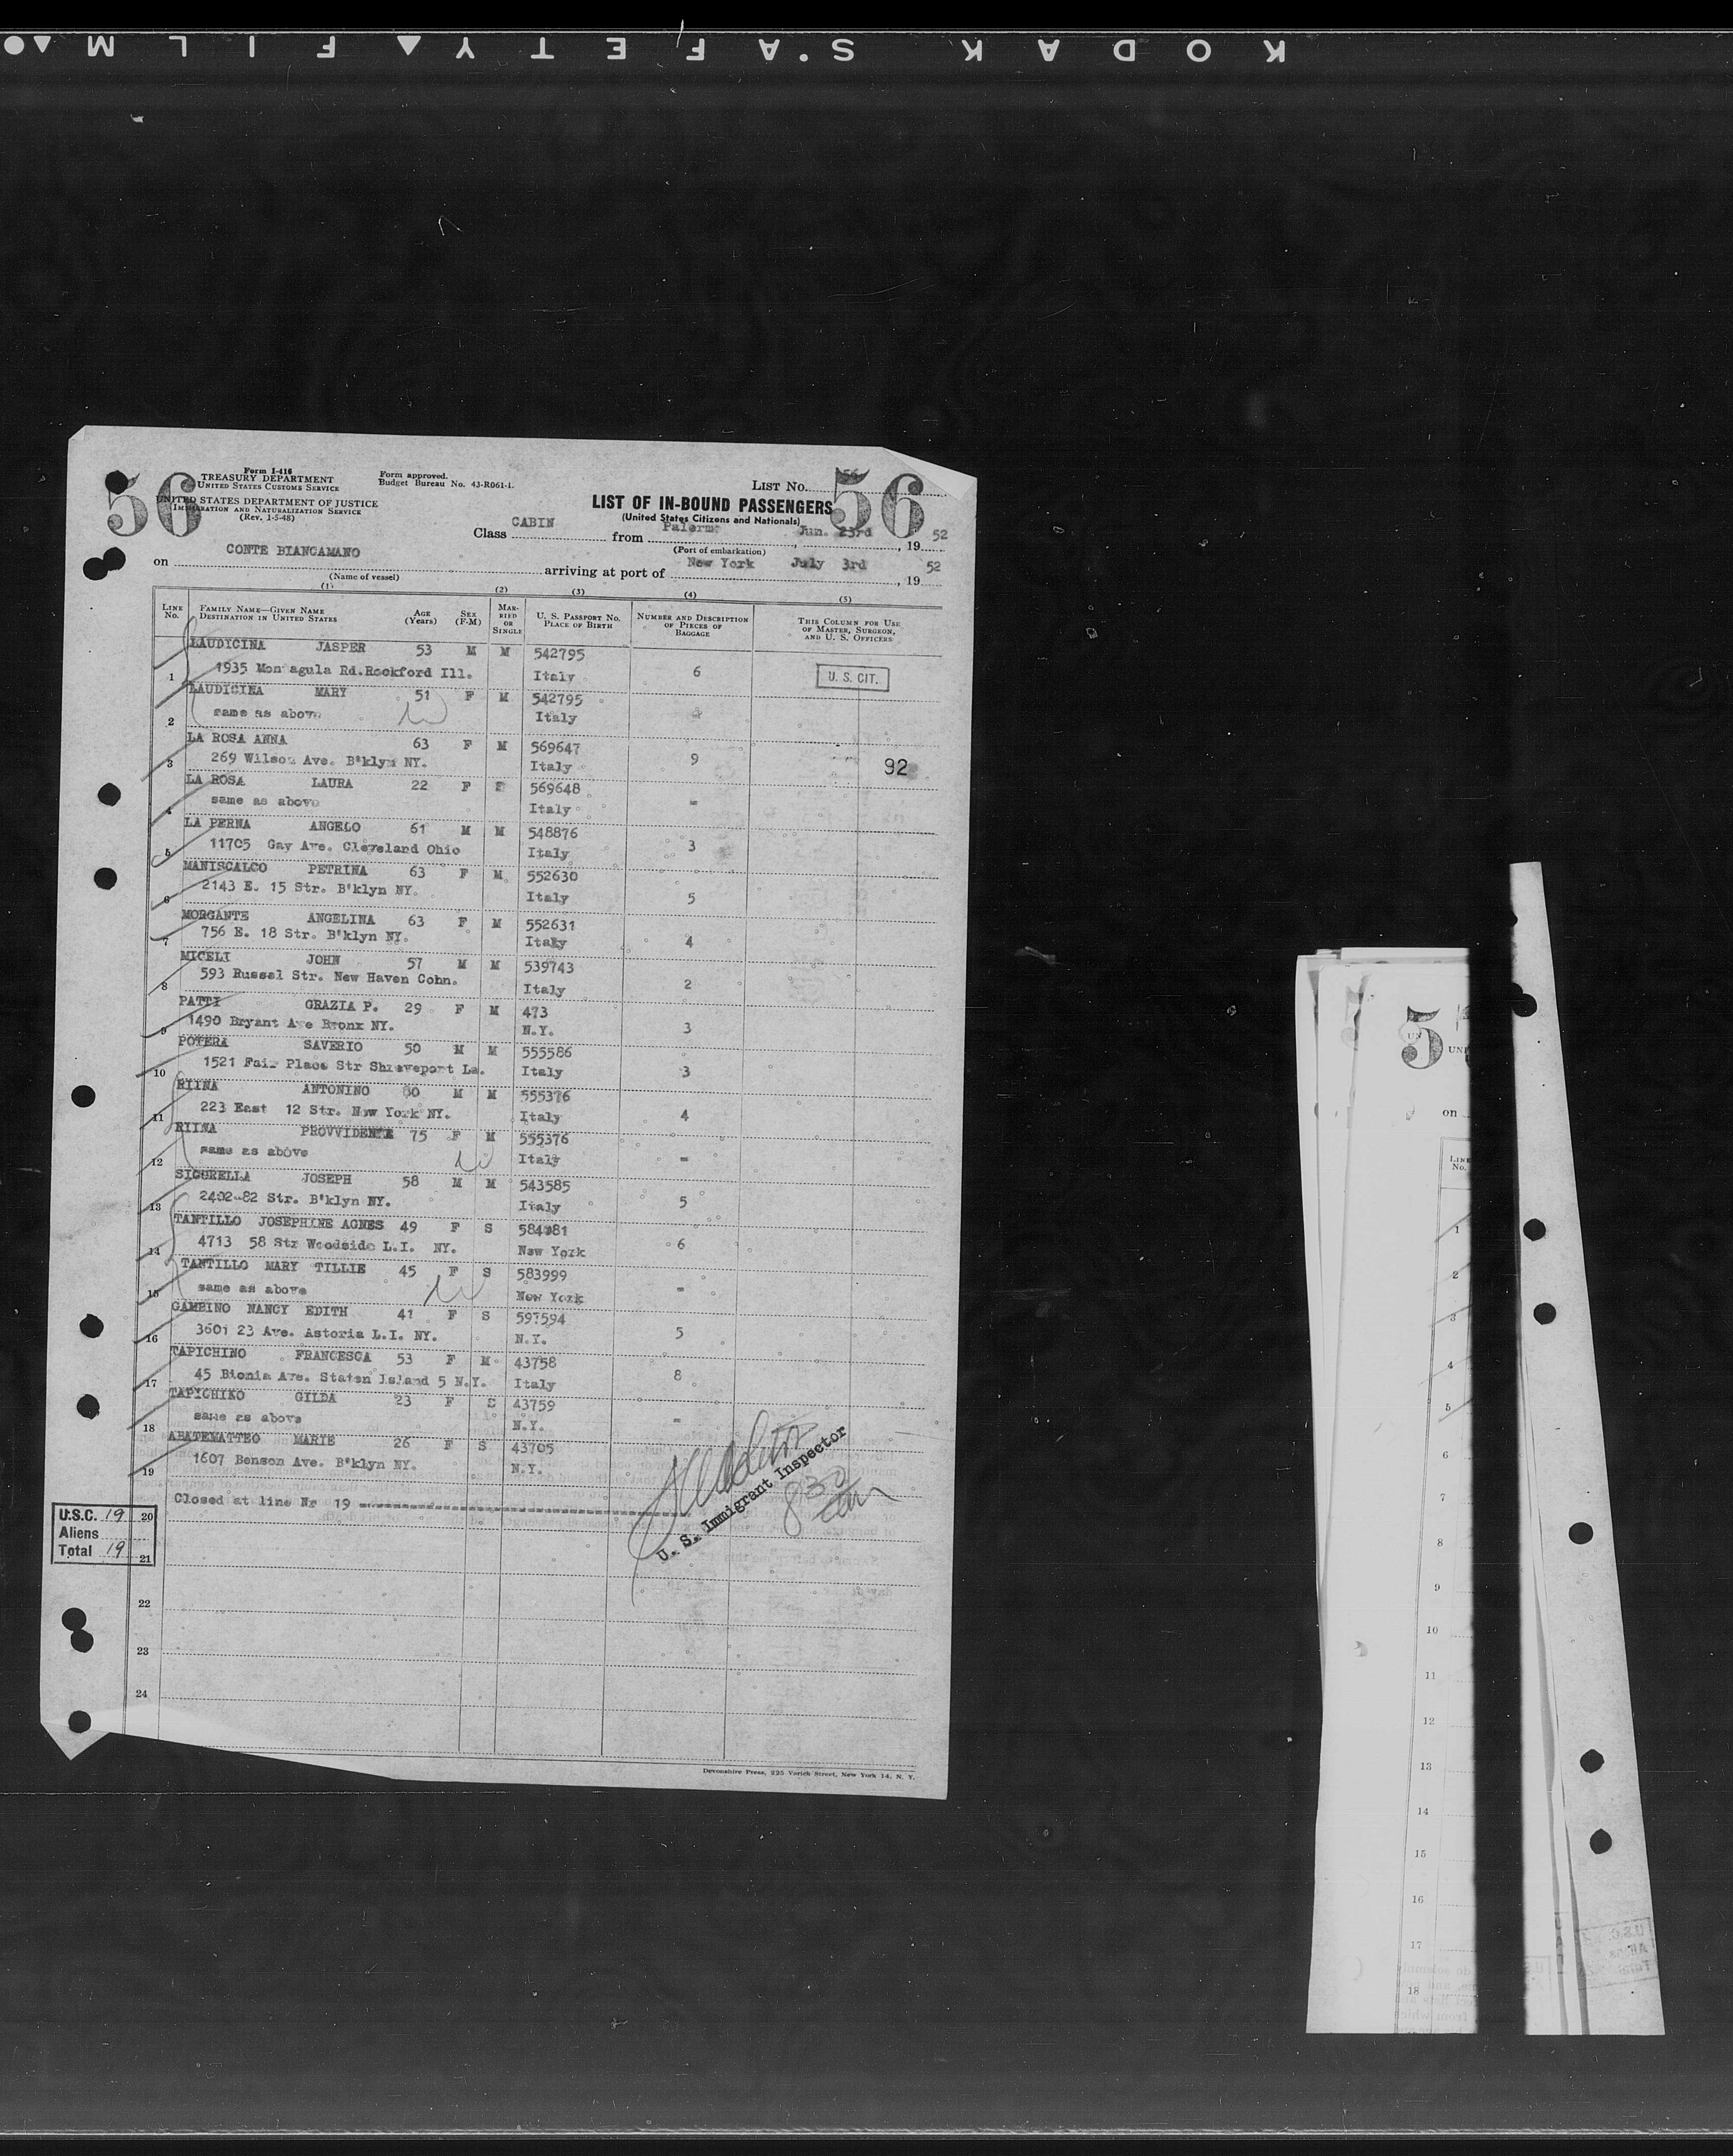 KODAK SAFETY FILM
56
Form I-416
TREASURY DEPARTMENT
UNITED STATES CUSTOMS SERVICE
UNITED STATES DEPARTMENT OF JUSTICE
IMMIGRATION AND NATURALIZATION SERVICE
(Rev. 1-5-48)
Form approved.
Budget Bureau No. 43-R061-1.
LIST NO.
56
LIST OF IN-BOUND PASSENGERS
(United States Citizens and Nationals)
Class CABIN from Palermo, Jun. 23rd, 1952
(Port of embarkation)
on CONTE BIANCAMANO arriving at port of New York July 3rd, 1952
(Name of vessel)
(1) (2) (3) (4) (5)
LINE No. FAMILY NAME—GIVEN NAME DESTINATION IN UNITED STATES AGE (Years) SEX (F-M) MARRIED OR SINGLE U. S. PASSPORT No. PLACE OF BIRTH NUMBER AND DESCRIPTION OF PIECES OF BAGGAGE THIS COLUMN FOR USE OF MASTER, SURGEON, AND U. S. OFFICERS
LAUDICINA JASPER 53 M M 542795
1 1935 Montagula Rd.Rockford Ill. Italy 6 U. S. CIT.
LAUDICINA MARY 51 F M 542795
2 same as above Italy
LA ROSA ANNA 63 F M 569647
3 269 Wilson Ave. B'klyn NY. Italy 9 92
LA ROSA LAURA 22 F S 569648
4 same as above Italy =
LA PERNA ANGELO 61 M M 548876
5 11705 Gay Ave. Cleveland Ohio Italy 3
MANISCALCO PETRINA 63 F M 552630
6 2143 E. 15 Str. B'klyn NY. Italy 5
MORGANTE ANGELINA 63 F M 552631
7 756 E. 18 Str. B'klyn NY. Italy 4
MICELI JOHN 57 M M 539743
8 593 Russel Str. New Haven Cohn. Italy 2
PATTI GRAZIA P. 29 F M 473
9 1490 Bryant Ave Bronx NY. N.Y. 3
POTERA SAVERIO 50 M M 555586
10 1521 Fair Place Str Shreveport La. Italy 3
RIINA ANTONINO 80 M M 555376
11 223 East 12 Str. New York NY. Italy 4
RIINA PROVVIDENZA 75 F M 555376
12 same as above Italy =
SIGURELLA JOSEPH 58 M M 543585
13 2402-82 Str. B'klyn NY. Italy 5
TANTILLO JOSEPHINE AGNES 49 F S
14 4713 58 Str Woodside L.I. NY. New York 6
TANTILLO MARY TILLIE 45 F S 583999
15 same as above New York =
GAMBINO NANCY EDITH 41 F S 597594
16 3601 23 Ave. Astoria L.I. NY. N.Y. 5
TAPICHINO FRANCESCA 53 F M 43758
17 45 Bionia Ave. Staten Island 5 N.Y. Italy 8
TAPICHINO GILDA 23 F S 43759
18 same as above N.Y. =
ABATEMATTEO MARIE 26 F S 43705
19 1607 Benson Ave. B'klyn NY. N.Y.
Closed at line Nr 19
20
21
22
23
24
U.S.C. 19
Aliens
Total 19
U. S. Immigrant Inspector
8 30
Devonshire Press, 225 Varick Street, New York 14, N. Y.
5
UNI
on
LINE No.
1
2
3
4
5
6
7
8
9
10
11
12
13
14
15
16
17
18